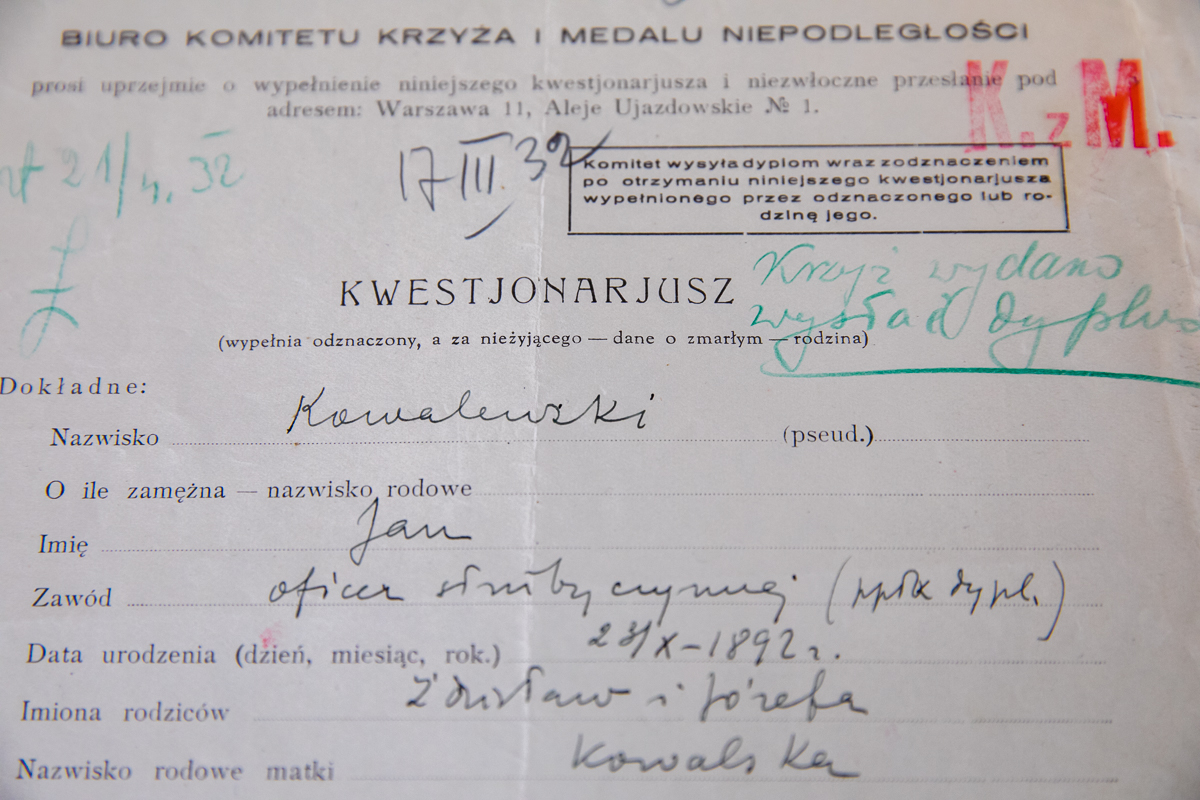 BIURO KOMITETU KRZYŻA I MEDALU NIEPODLEGŁOŚCI
prosi uprzejmie o wypełnienie niniejszego kwestjonarjusza i niezwłoczne przesłanie pod
adresem: Warszawa 11, Aleje Ujazdowskie № 1.
K. z M.
21/4. 32
17 III. 32
Komitet wysyła dyplom wraz z odznaczeniem
po otrzymaniu niniejszego kwestjonarjusza
wypełnionego przez odznaczonego lub ro-
dzinę jego.
Krzyż wydano
wysłać dyplom
KWESTJONARJUSZ
(wypełnia odznaczony, a za nieżyjącego — dane o zmarłym — rodzina)
Dokładne:
Nazwisko Kowalewski (pseud.)
O ile zamężna — nazwisko rodowe
Imię Jan
Zawód oficer służby czynnej (ppłk dypl.)
Data urodzenia (dzień, miesiąc, rok.) 23/X-1892 r.
Imiona rodziców Zdzisław i Józefa
Nazwisko rodowe matki Kowalska